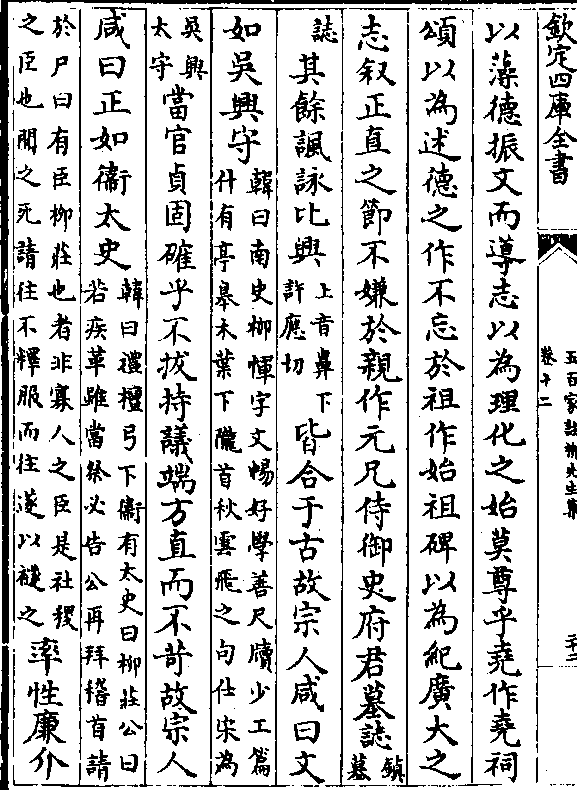 欽定四庫全書
五百家註柳先生集
卷十二
以藻德振文而導志以為理化之始莫尊乎堯作堯祠
頌以為述德之作不忘於祖作始祖碑以為紀廣大之
志叙正直之節不嫌於親作元兄侍御史府君墓誌
鎮
墓
誌
其餘諷詠比興
上音鼻下
許應切
皆合于古故宗人咸曰文
如吳興守
韓曰南史柳惲字文暢好學善尺牘少工篇
什有亭皋木葉下隴首秋雲飛之句仕宋為
吳興
太守
當官貞固確乎不拔持議端方直而不苛故宗人
咸曰正如衞太史
韓曰禮檀弓下衞有太史曰柳莊公曰
若疾革雖當祭必告公再拜稽首請
於尸曰有臣柳莊也者非寡人之臣是社稷
之臣也聞之死請往不釋服而往遂以襚之
率性廉介